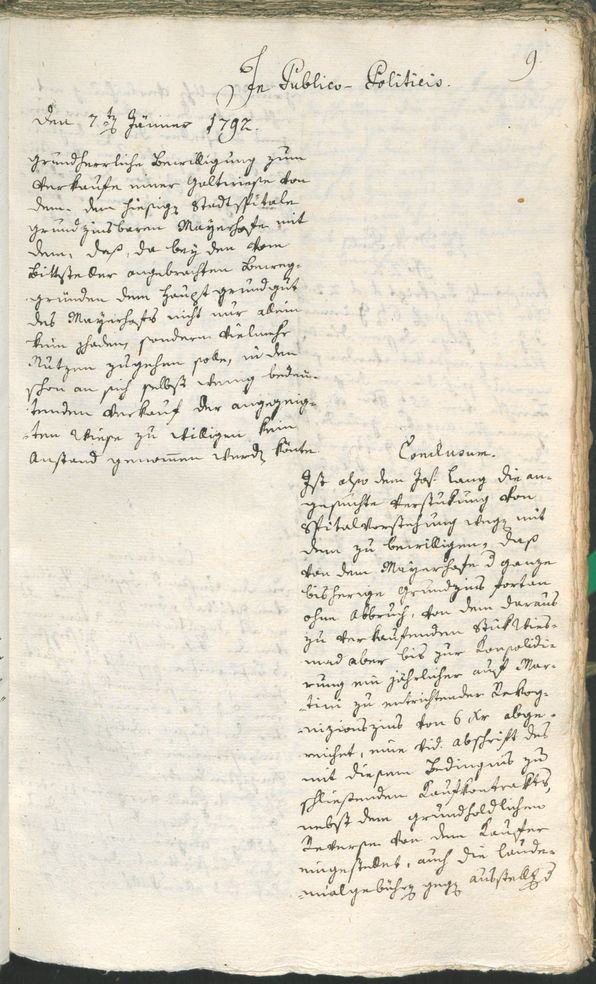 9.
In Publico-Politicis.
Den 7ten Jänner 1792.
grundherrliche Bewilligung zum
Verkaufe einer Galtwiese von
dem dem hiesigen Stadtspitale
grundzinsbaren Mayerhofe mit
dem, daß, da bey den vom
Bittsteller angebrachten Beweg-
gründen dem Hauptgrundgut
des Mayerhofs nicht nur allein
kein Schaden, sondern vielmehr
Nutzen zugehen solle, in den
schon an sich selbst wenig bedeu-
tendem Verkauf der angezeig-
ten Wiese zu willigen kein
Anstand genommen werden könte.
Conclusum.
Ist also dem Jos. Lang die an-
gesuchte Verstükung von
Spitalvorstehung wegen mit
dem zu bewilligen, daß
von dem Mayerhofe d ganze
bisherige Grundzins fortan
ohne Abbruch, von dem daraus
zu verkaufenden Stük Wies-
mad aber bis zur Konsolidi-
rung ein jährlicher auf Mar-
tini zu entrichtender Rekog-
nizionszins von 6 Xr abge-
reichet, eine vid. Abschrift des
mit diesem Bedingnis zu
schließenden Kaufkontrakts,
nebst dem grundholdlichen
Reverse von dem Kaufer
eingestellet, auch die Laude-
mialgebühren gegen Ausstellung d